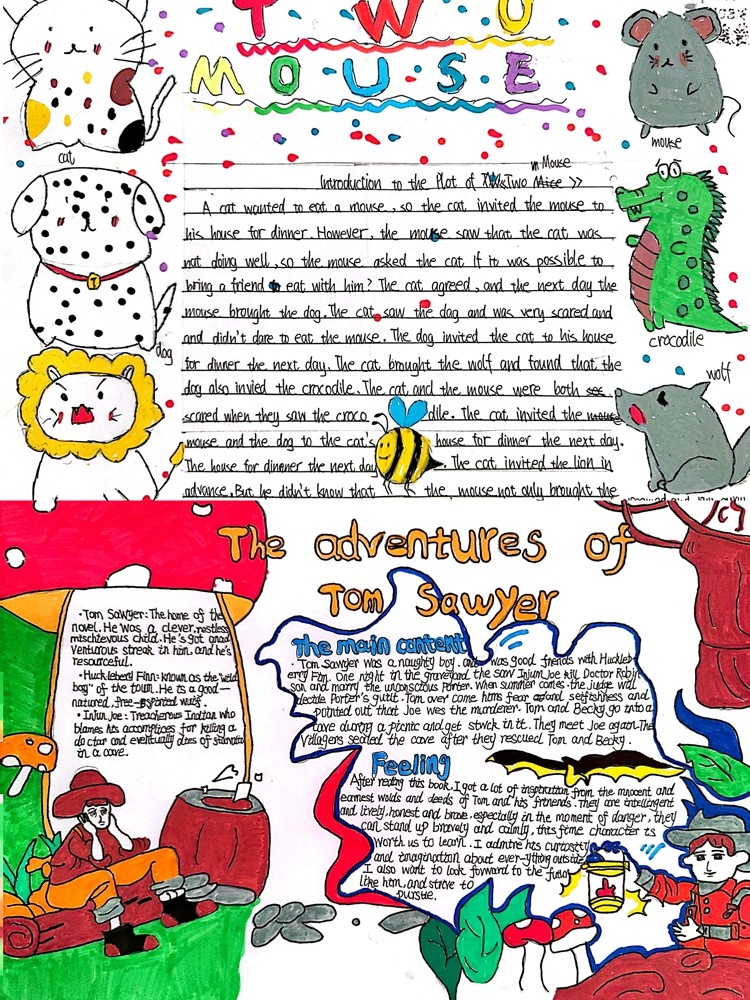 TWO
MOUSE
cat
mouse
in Mouse
Introduction to the Plot of Two Mice >>
A cat wanted to eat a mouse, so the cat invited the mouse to
his house for dinner. However, the mouse saw that the cat was
not doing well, so the mouse asked the cat If it was possible to
bring a friend to eat with him? The cat agreed, and the next day the
mouse brought the dog. The cat saw the dog and was very scared and
and didn't dare to eat the mouse. The dog invited the cat to his house
for dinner the next day. The cat brought the wolf and found that the
dog also invied the crocodile. The cat and the mouse were both
scared when they saw the croco dile. The cat invited the mouse
mouse and the dog to the cat's house for dinner the next day.
The house for dinnner the next day. The cat invited the lion in
advance. But he didn't know that the mouse not only brought the
dog
crocodile
wolf
The adventures of
Tom Sawyer
• Tom Sawyer: The home of the
novel. He was a clever, restless
mischievous child. He's got anad
venturous streak in him and he's
resourceful.
• Huckleberg Finn: known as the "wild
boy" of the town. He is a good-
natured, free-spirited waif.
• Injun Joe: Treacherous Indian who
blames his accomplices for killing a
doctor and eventually dies of
in a cave.
The main content
• Tom Sawyer was a naughty boy, and was good friends with Huckleb
erry Finn. One night in the graveyard the saw Injun Joe kill Doctor Robin
son and marry the unconscious Porter. When summer comes, the judge will
decide Porter's guilt. Tom over come hims fear and selfishness and
pointed out that Joe was the murderer. Tom and Becky go into a
cave during a picnic and get stuck in it. They meet Joe again. The
villagers sealed the cave after they rescued Tom and Becky.
Feeling
After reding this book, I got a lot of inspiration from the innocent and
earnest wolds and deeds of Tom and his friends. They are intelligent
and lively, honest and brave, especially in the moment of danger, they
can stand up bravely and calmly, this fime character is
worth us to learn. I admire his curiosity
and imagination about ever-ything outside
I also want to look forward to the futur
like him, and strive to
pursue.